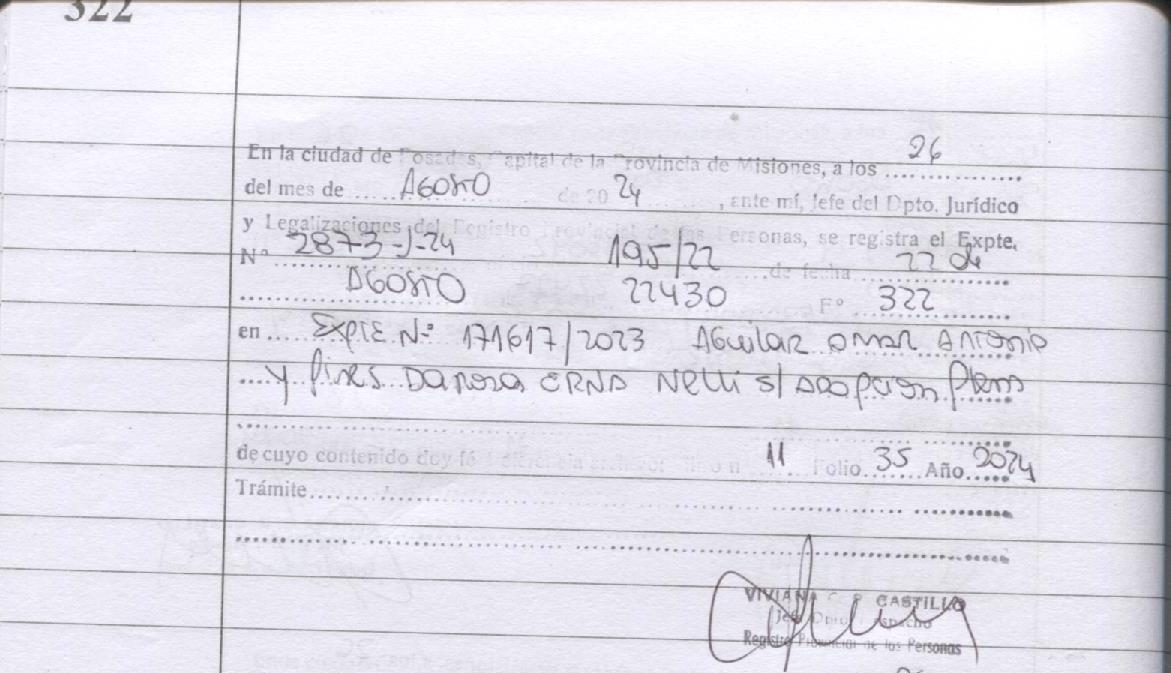 322
En la ciudad de Posadas, Capital de la Provincia de Misiones, a los 26
del mes de AGOSTO de 20 24, ante mí, Jefe del Dpto. Jurídico
y Legalizaciones del Registro Provincial de las Personas, se registra el Expte.
Nº 2873-J-24 195/22 de fecha 22 de
AGOSTO 22430 Fº 322
en Expte Nº 171617/2023 Aguilar Omar Antonio
y Pires Darosa ERNA Nelli s/ Adopcion Plena
de cuyo contenido doy fé 11 Folio 35 Año 2024
Trámite
VIVIANA CASTILLO
Jefe Dpto. Despacho
Registro Provincial de las Personas